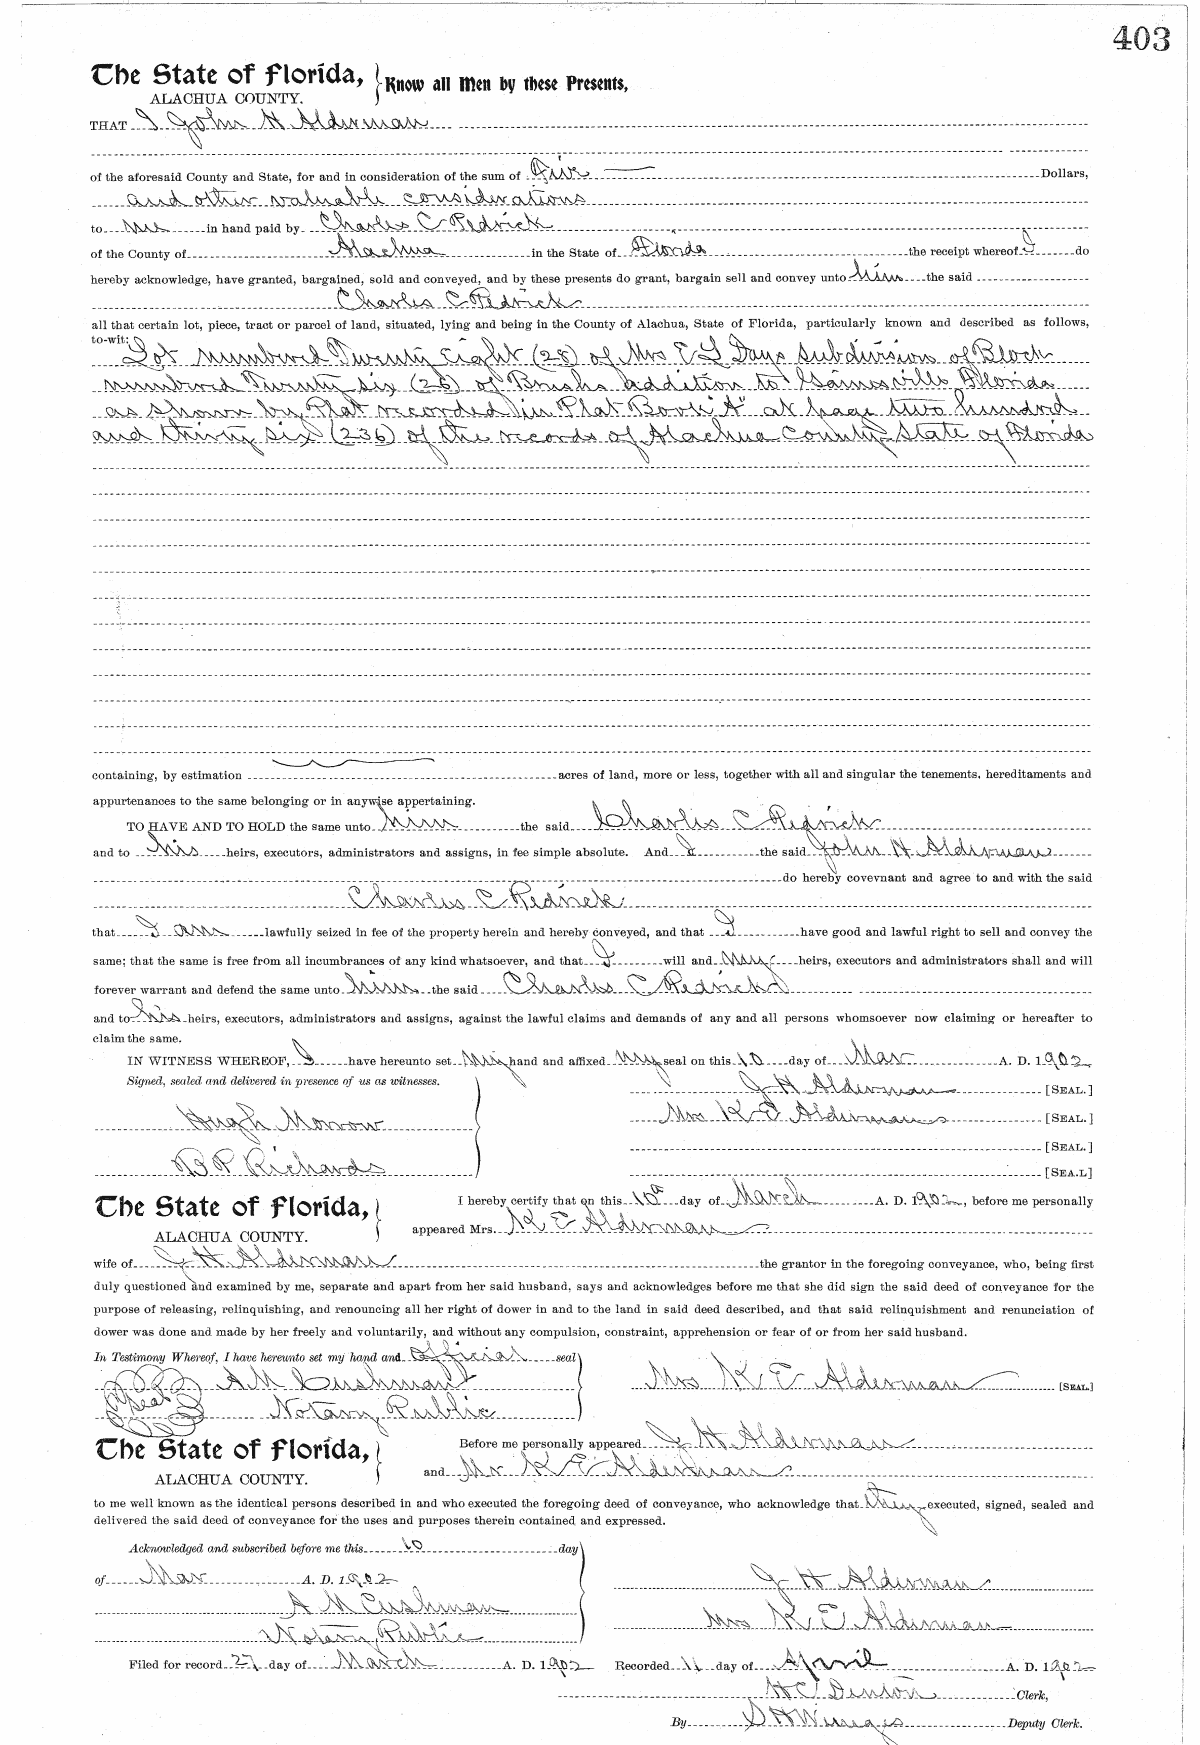 403
The State of Florida, } Know all Men by these Presents,
ALACHUA COUNTY.
THAT I John H Alderman
of the aforesaid County and State, for and in consideration of the sum of Five Dollars,
and other valuable considerations
to me in hand paid by Charles C Pedrick
of the County of Alachua in the State of Florida the receipt whereof I do
hereby acknowledge, have granted, bargained, sold and conveyed, and by these presents do grant, bargain sell and convey unto him the said
Charles C Pedrick
all that certain lot, piece, tract or parcel of land, situated, lying and being in the County of Alachua, State of Florida, particularly known and described as follows,
to-wit:
Lot numbered Twenty Eight (28) of Mrs E L Days subdivision of Block
numbered Twenty six (26) of Brushs addition to Gainesville Florida
as shown by Plat recorded in Plat Book "A" at page two hundred
and thirty six (236) of the records of Alachua County State of Florida
containing, by estimation acres of land, more or less, together with all and singular the tenements, hereditaments and
appurtenances to the same belonging or in anywise appertaining.
TO HAVE AND TO HOLD the same unto him the said Charles C Pedrick
and to his heirs, executors, administrators and assigns, in fee simple absolute. And I the said John H Alderman
do hereby covevnant and agree to and with the said
Charles C Pedrick
that I am lawfully seized in fee of the property herein and hereby conveyed, and that I have good and lawful right to sell and convey the
same; that the same is free from all incumbrances of any kind whatsoever, and that I will and my heirs, executors and administrators shall and will
forever warrant and defend the same unto him the said Charles C Pedrick
and to his heirs, executors, administrators and assigns, against the lawful claims and demands of any and all persons whomsoever now claiming or hereafter to
claim the same.
IN WITNESS WHEREOF, I have hereunto set my hand and affixed my seal on this 10 day of Mar A. D. 1902
Signed, sealed and delivered in presence of us as witnesses.
J H Alderman [SEAL.]
Hugh Morrow
Mrs K E Alderman [SEAL.]
[SEAL.]
B P Richards
[SEA.L]
The State of Florida, }
ALACHUA COUNTY.
I hereby certify that on this 10th day of March A. D. 1902, before me personally
appeared Mrs. K E Alderman
wife of J H Alderman the grantor in the foregoing conveyance, who, being first
duly questioned and examined by me, separate and apart from her said husband, says and acknowledges before me that she did sign the said deed of conveyance for the
purpose of releasing, relinquishing, and renouncing all her right of dower in and to the land in said deed described, and that said relinquishment and renunciation of
dower was done and made by her freely and voluntarily, and without any compulsion, constraint, apprehension or fear of or from her said husband.
In Testimony Whereof, I have hereunto set my hand and official seal
A M Cushman
Mrs K E Alderman [SEAL]
Seal
Notary Public
The State of Florida, }
ALACHUA COUNTY.
Before me personally appeared J H Alderman
and Mrs K E Alderman
to me well known as the identical persons described in and who executed the foregoing deed of conveyance, who acknowledge that they executed, signed, sealed and
delivered the said deed of conveyance for the uses and purposes therein contained and expressed.
Acknowledged and subscribed before me this 10 day
of Mar A. D. 1902
J H Alderman
A M Cushman
Mrs K E Alderman
Notary Public
Filed for record 27 day of March A. D. 1902 Recorded 11 day of April A. D. 1902
H C Denton Clerk,
By S H Wienges Deputy Clerk.